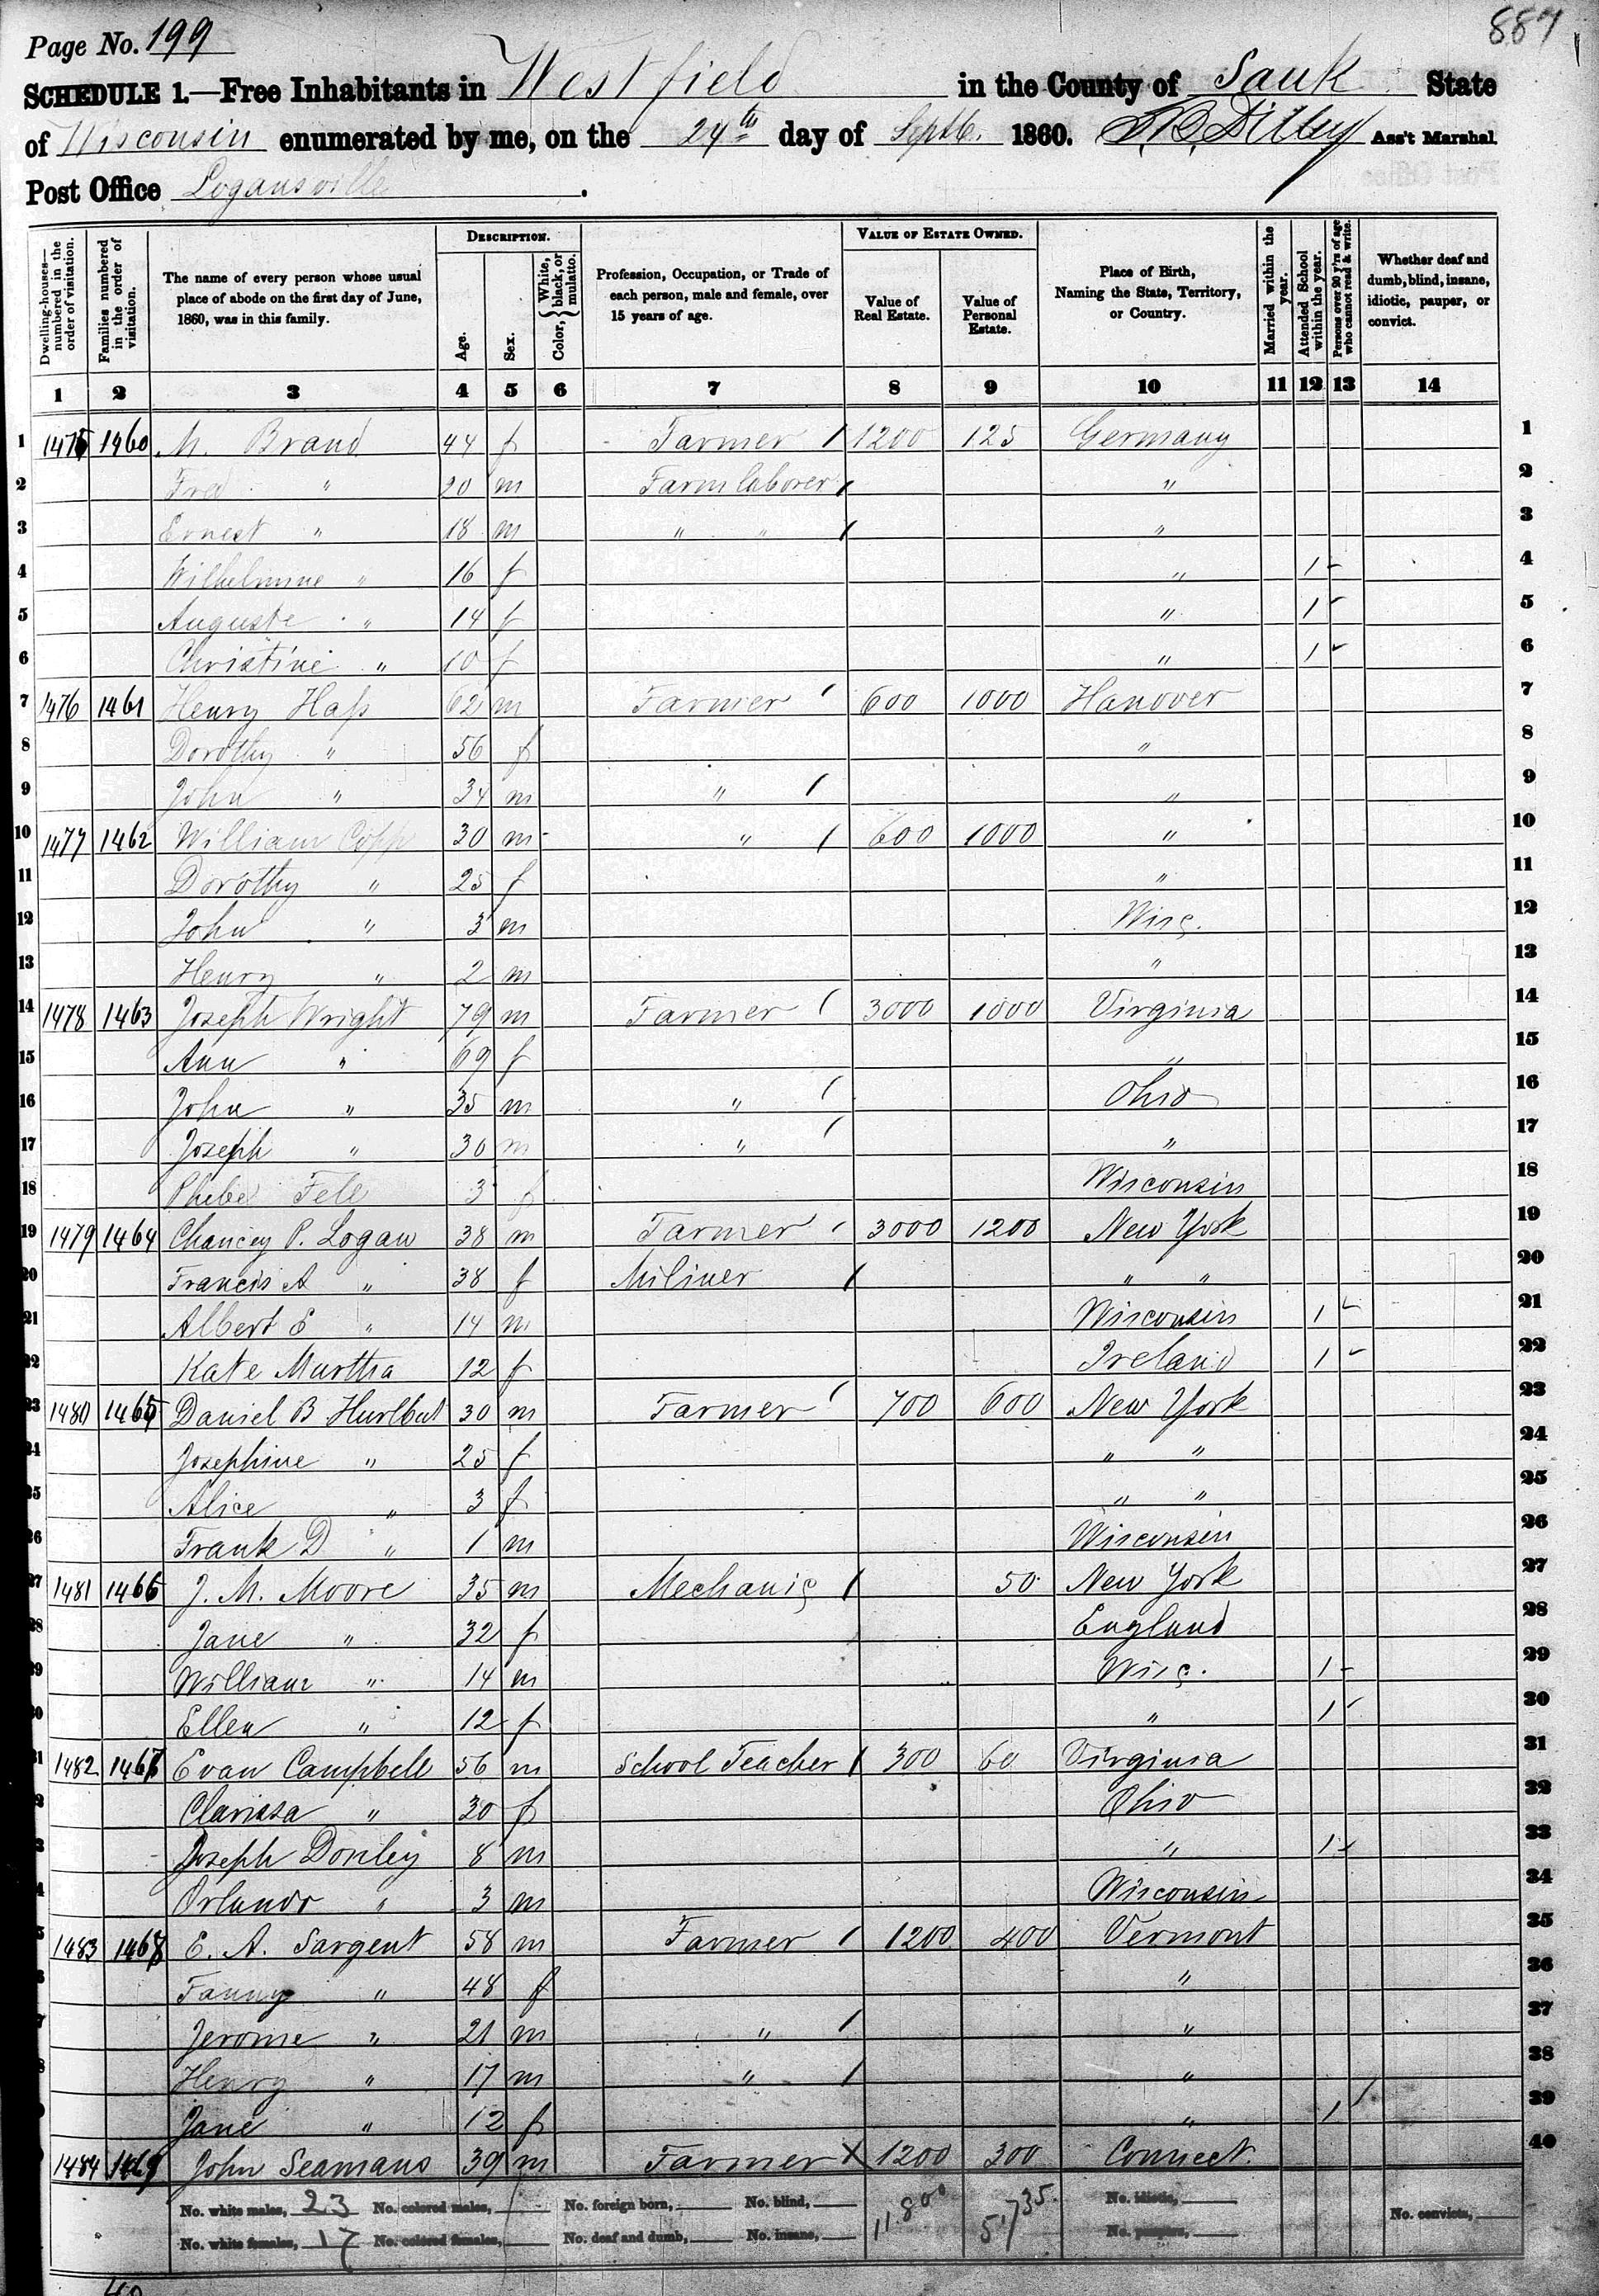 887
Page No. 199
SCHEDULE 1.—Free Inhabitants in Westfield in the County of Sauk State
of Wisconsin enumerated by me, on the 24th day of Septb. 1860. Ass't Marshal.
Post Office Logansville.
Dwelling-houses—numbered in the order of visitation.
Families numbered in the order of visitation.
The name of every person whose usual place of abode on the first day of June, 1860, was in this family.
DESCRIPTION.
Age.
Sex.
Color, { White, black, or mulatto.
Profession, Occupation, or Trade of each person, male and female, over 15 years of age.
VALUE OF ESTATE OWNED.
Value of Real Estate.
Value of Personal Estate.
Place of Birth, Naming the State, Territory, or Country.
Married within the year.
Attended School within the year.
Persons over 20 y'rs of age who cannot read & write.
Whether deaf and dumb, blind, insane, idiotic, pauper, or convict.
1 2 3 4 5 6 7 8 9 10 11 12 13 14
1 1475 1460 M. Brand 44 f Farmer / 1200 125 Germany 1
2 Fred " 20 m Farm laborer / " 2
3 Ernest " 18 m " " / " 3
4 Wilhelmine " 16 f " 1 4
5 Auguste " 14 f " 1 5
6 Christine " 10 f " 1 6
7 1476 1461 Henry Haſs 62 m Farmer / 600 1000 Hanover 7
8 Dorothy " 56 f " 8
9 John " 34 m " / " 9
10 1477 1462 William Copp 30 m " / 600 1000 " 10
11 Dorothy " 25 f " 11
12 John " 3 m Wisc. 12
13 Henry " 2 m " 13
14 1478 1463 Joseph Wright 79 m Farmer / 3000 1000 Virginia 14
15 Ann " 69 f " 15
16 John " 35 m " / Ohio 16
17 Joseph " 30 m " / " 17
18 Phebe 3 f Wisconsin 18
19 1479 1464 Chancey P. Logan 38 m Farmer / 3000 1200 New York 19
20 Francis A " 38 f Miliner / " " 20
21 Albert E " 14 m Wisconsin 1 21
22 Kate Murtha 12 f Ireland 1 22
23 1480 1465 Daniel B Hurlbut 30 m Farmer / 700 600 New York 23
24 Josephine " 25 f " " 24
25 Alice " 3 f " " 25
26 Frank D " 1 m Wisconsin 26
27 1481 1466 J. M. Moore 35 m Mechanic / 50 New York 27
28 Jane " 32 f England 28
29 William " 14 m Wisc. 1 29
30 Ellen " 12 f " 1 30
31 1482 1467 Evan Campbell 56 m School Teacher / 300 60 Virginia 31
Clarissa " 30 f Ohio 32
Joseph Donley 8 m " 1 33
Orlando " 3 m Wisconsin 34
1483 1468 E. A. Sargent 58 m Farmer / 1200 400 Vermont 35
Fanny " 48 f " 36
Jerome " 21 m " / " 37
Henry " 17 m " / " 38
Jane " 12 f " 1 39
1484 1469 John Seamans 39 m Farmer X 1200 300 Connect. 40
No. white males, 23 No. colored males, No. foreign born, No. blind, 11.800 5.735 No. idiotic, No. convicts,
No. white females, 17 No. colored females, No. deaf and dumb, No. insane, No. paupers,
40